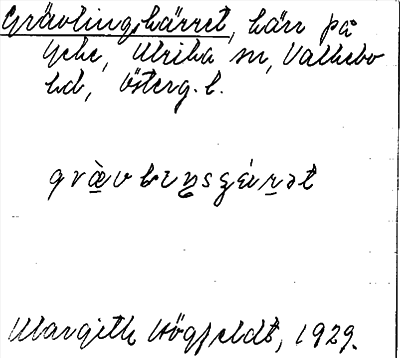 Grävlingskärret, kärr på
Yche, Ulrika sn, Valkebo
hd, Österg. l.
grävliŋsçärət
Margith Högfeldt, 1929.